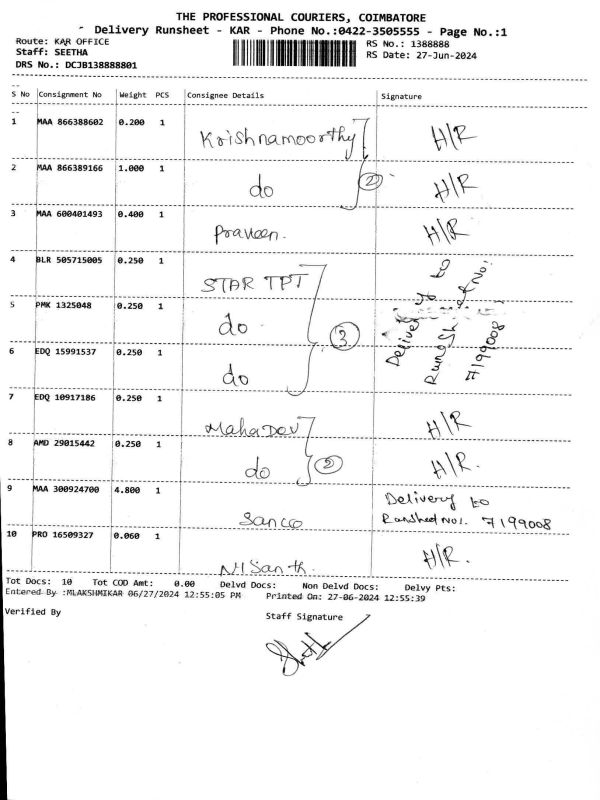 THE PROFESSIONAL COURIERS, COIMBATORE
Delivery Runsheet - KAR - Phone No.:0422-3505555 - Page No.:1
Route: KAR OFFICE RS No.: 1388888
Staff: SEETHA RS Date: 27-Jun-2024
DRS No.: DCJB138888801
S No Consignment No Weight PCS Consignee Details Signature
1 MAA 866388602 0.200 1 Krishnamoorthy H/R
2 MAA 866389166 1.000 1 do ② H/R
3 MAA 600401493 0.400 1 Praveen. H/R
4 BLR 505715005 0.250 1 STAR TPT
5 PMK 1325048 0.250 1 do ③
6 EDQ 15991537 0.250 1 do
Delivery to
Runsheet No:
7199008
7 EDQ 10917186 0.250 1 MahaDev H/R
8 AMD 29015442 0.250 1 do ② H/R.
9 MAA 300924700 4.800 1 Sanco Delivery to
Runsheet No:. 7199008
10 PRO 16509327 0.060 1 H/R.
Tot Docs: 10 Tot COD Amt: 0.00 Delvd Docs: Non Delvd Docs: Delvy Pts:
Entered By :MLAKSHMIKAR 06/27/2024 12:55:05 PM Printed On: 27-06-2024 12:55:39
Verified By Staff Signature